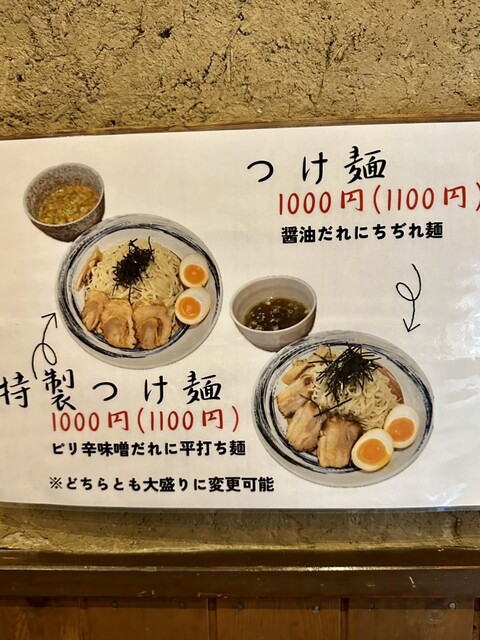 つけ麺
1000円(1100円)
醤油だれにちぢれ麺
特製つけ麺
1000円(1100円)
ピリ辛味噌だれに平打ち麺
※どちらとも大盛りに変更可能